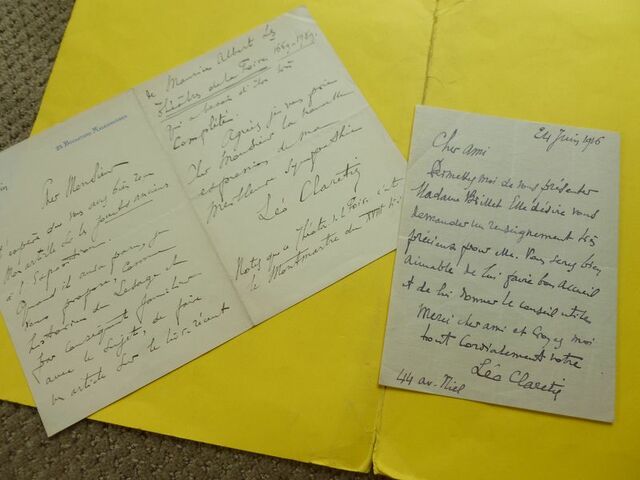 Cher Monsieur
J'espère que vous avez bien reçu
mon article
à la Supposition.
Quand il aura paru, je
vous propose, comme
historien de Lesage et
par conséquent familier
avec le sujet, de faire
un article sur le livre récent
de Maurice Albert Les
Théâtres de la Foire 1669-1789.
qui a besoin d'être très
complété.
Agréez je vous prie
Cher Monsieur la nouvelle
expression de ma
meilleure sympathie
Léo Claretie
Notez que ce Théâtre de la Foire, c'était
le Montmartre du XVIIIe siècle
24 Juin 1916
Cher ami
Permettez moi de vous présenter
Madame Brillet Elle désire vous
demander un renseignement très
précieux pour elle. Vous serez bien
aimable de lui faire bon accueil
et de lui donner le conseil utile.
Merci cher ami et croyez moi
tout cordialement votre
Léo Claretie
44 av. Niel